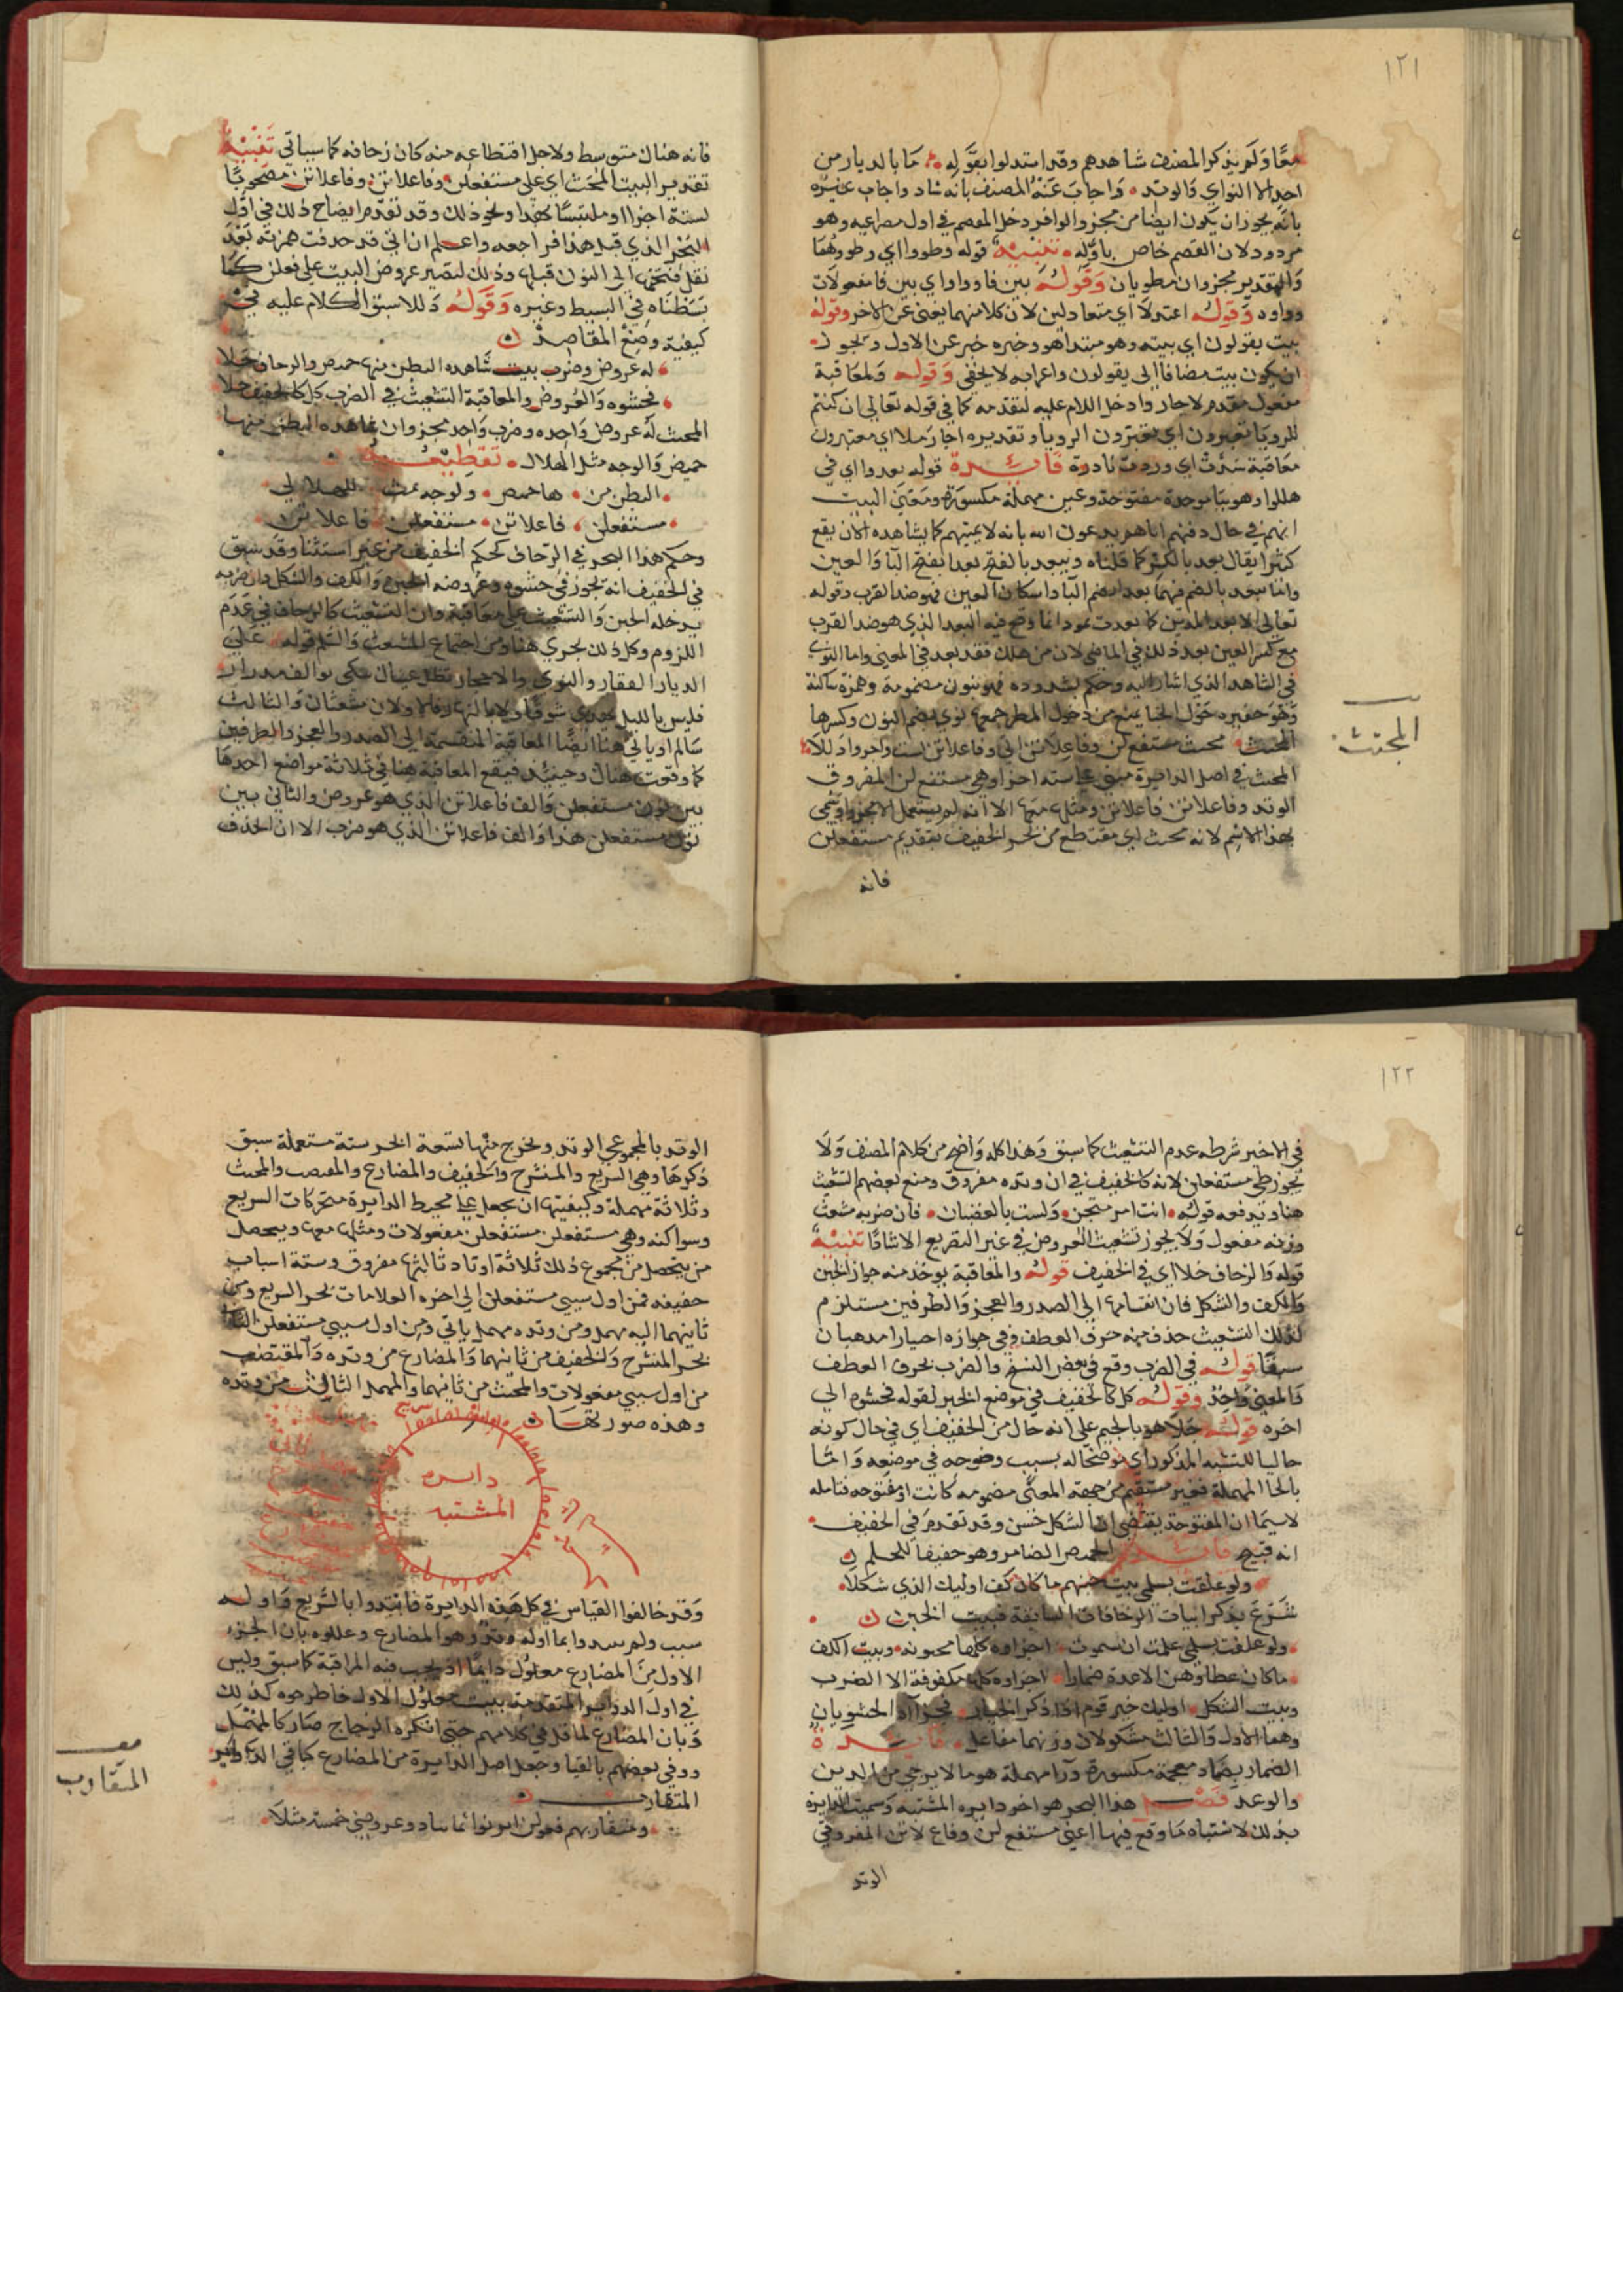 ١٢١
معًا وَلم يذكر المصنف شاهدهم وقد استدلوا بقوله ما بالديار من
احد الا النواي والوتد وَاجابَ عَنهُ المصنف بانه شاد واجاب غيره
بانه يجوز ان يكون ايضا من مجزو الوافر دخل العصم في اول مصراعيه وهو
مردود لان العصم خاص باوله تنبيه قوله وطووا اي وطووهما
وَالتقدير مجزوان مطويان وَقوله بين فا وواو اي بين فا مفعولات
وواوه وَقوله اعتدلا اي متعادلين لان كلا منهما يغني عن الاخر وقوله
بيت يقولون اي بيته وهو مبتدا هو وخبره خبر عن الاول ويجوز
ان يكون بيت مضافا الى يقولون واعرابه لا يخفى وَقوله وَلمعاقبة
مفعول مقدم لاجاز وادخل اللام عليه لتقدمه كما في قوله تعالى ان كنتم
للرويا تعبرون اي تعبرون الرويا وتقديره اجاز ملا اي معتبرون
معاقبة اي وردت نادرة فايدة قوله بعدوا اي في
هللوا وهو بيا موحدة مفتوحة وعين مهملة مكسورة ومعنى البيت
انهم في حال دفنهم اياهم يدعون الله بانه لا يميتهم كما يشاهده الان يقع
كثيرا يقال بعد بالكسر كما قلناه ويبعد بالفتح بعدا بفتح البا وَالعين
واما بعد بالضم فيهما بعدا بضم البا واسكان العين فهو ضد القرب وقوله
تعالى الا بعدا لمدين كما بعدت ثمود انما وقع فيه البعد الذي هو ضد القرب
مع كسر العين بعد ذلك في الماضي لان من هلك فقد بعد في المعنى واما النوي
في الشاهد الذي اشار اليه وحكم بشدوده فهو بنون مضمومة وهمزة ساكنة
وَهو حفيره حَول الخبا يمنع من دخول المطر جمعها نوي بضم النون وكسرها
المجتث مجتث مستفع لن وفاعلاتن
المجتث في اصل الدايرة مبني على ستة اجزا وهي مستفع لن المفروق
الوتد وفاعلاتن فاعلاتن ومثلها معها الا انه لم يستعمل الا مجزوا وسمي
بهذا الاسم لانه مجتث اي مقتطع من بحر الخفيف بتقديم مستفعلن
فانه
المجتث
فانه هناك متوسط ولاجل اقتطاعه منه كان زحافه كما سياتي تنبيه
تقدير البيت المجتث اي على مستفعلن وفاعلاتن وفاعلاتن مصحوبًا
لستة اجزا او ملتبسًا بهذا ونحو ذلك وقد تقدم ايضاح ذلك في اول
البحر الذي قبل هذا فراجعه واعلم ان اني قد حدفت همزته بعد
نقل فتحتها الى النون قبلها وذلك لتصير عروض البيت على فعلن كما
بسطناه في البسيط وغيره وَقوله دللا سبق الكلام عليه في
كيفية وضع المقاصد
له عروض وضرب بيت شاهده البطن منها خميص والزحاف خلا
فحشوه وَالعروض والمعاقبة التشعيث في الضرب كل كالخفيف جلا
المجتث له عروض وَاحده وضرب وَاحد مجزوان شاهده البطن منها
خميص وَالوجه مثل الهلال تقطيعه
البطن من هاخميص ولوجه مث للهلالي
مستفعلن فاعلاتن مستفعلن فاعلاتن
وحكم هذا البحر في الزحاف كحكم الخفيف من غير استثنا وقد سبق
في الخفيف انه يجوز في حشوه وعروضه الخبن وَالكف والشكل وان ضربه
يدخله الخبن وَالتشعيث على معاقبة وان التشعيث كالزحاف في عدم
اللزوم وكل ذلك يجري هنا ومن اجتماع المشعث وَالسالم قوله على
الديار القفار والنوي والاحجار تظل عيناك تبكي بواكف مدرار
فليس بالليل تهدي شوقا ولا بالنهار فالاولان مشعثان وَالثالث
سالم او ياتي هنا ايضًا المعاقبة المنقسمة الى الصدر والعجز والطرفين
كما وقعت هناك وحينيذ فيقع المعاقبة هنا في ثلاثة مواضع احدها
بين نون مستفعلن وَالف فاعلاتن الذي هو عروض والثاني بين
نون مستفعلن هذا وَالف فاعلاتن الذي هو ضرب الا ان الحذف
١٢٢
في الاخير شرطه عدم التشعيث كما سبق وَهذا كله وَاضح من كلام المصنف وَلا
يجوز طي مستفعلن لانه كالخفيف في ان وتده مفروق ومنع بعضهم التشعيث
هنا ويدفعه قوله انت امر متجن ولست بالغضبان فان ضربه مشعث
وزنه مفعول وَلا يجوز تشعيث العروض في غير التصريع الا شاذا تنبيه
قوله وَالزحاف خلا اي في الخفيف قوله والمعاقبة يوخذ منه جواز الخبن
وَالكف والشكل فان انقسامها الى الصدر والعجز وَالطرفين مستلزم
لذلك التشعيث حذف منه حرف العطف وفي جوازه اختيارا مدهبان
سبقا قوله في الضرب وقع في بعض النسخ والضرب بحرف العطف
وَالمعنى وَاحد وقوله كل كالخفيف في موضع الخبر لقوله فحشوه الى
اخره قوله جلا هو بالجيم على انه حال من الخفيف اي في حال كونه
جاليا للتشبه المذكور اي موضحا له بسبب وضوحه في موضعه وَاما
بالخا المهملة فغير مستقيم من جهة المعنى مضمومه كانت او مفتوحه فتامله
لا سيما ان المفتوحة يقتضي ان الشكل حسن وقد تقدم في الخفيف
انه قبيح فايدة الخميص الضامر وهو حقيقا للحلم
ولو علقت بسلمى بيت خبنهم ما كان كف اوليك الذي شكلا
شرع يذكر ابيات الزحافات السابقة فبيت الخبن
ولو علقت بسلمى علمت ان ستموت اجزاوه كلها مخبونه وبيت الكف
ماكان عطاوهن الا عدة ضمارا اجزاوه كلها مكفوفة الا الضرب
وبيت الشكل اوليك خير قوم اذا ذكر الخيار فجزاه الحشويان
وهما الاول وَالثالث مشكولان وزنهما مفاعل فايدة
الضمار بضاد معجمة مكسورة ورآ مهملة هو ما لا يرجى من الدين
والوعد فصل هذا البحر هو اخر دايره المشتبه وَسميت الدايرة
بذلك لاشتباه مَا وقع فيها اعني مستفع لن وفاع لاتن المفروقي
الوتد
الوتد بالمجموعي الوتد ويخرج منها تسعة ابحر ستة مستعملة سبق
ذكرها وهي السريع والمنسرح وَالخفيف والمضارع والمقتضب والمجتث
وثلاثة مهملة وكيفيتها ان تجعل على محيط الدايرة متحركات السريع
وسواكنه وهي مستفعلن مستفعلن مفعولات ومثلها معها ويحصل
من يتحصل من مجموع ذلك ثلاثة اوتاد ثالثها مفروق وستة اسباب
خفيفه فمن اول سببي مستفعلن الى اخره العلامات بحر السريع ومن
ثانيهما اليه مهمل ومن وتده مهمل ياتي ومن اول سببي مستفعلن الثاني
بحر المنسرح وَالخفيف من ثانيهما وَالمضارع من وتده وَالمقتضب
من اول سببي مفعولات والمجتث من ثانيهما والمهمل الثالث من وتده
وهذه صورتها
سريع
دايره
المشتبه
وَقد خالفوا القياس في كل هَذه الدايرة فابتدوا بالسَّريع وَاوله
سبب ولم يبدوا بما اوله وتد وهو المضارع وعللوه بان الجزء
الاول من المضارع معلول دايمًا اذ يجب فيه المراقبة كما سبق وليس
في اول الدواير المتقدمة بيت معلول الاول فاطرحوه كذلك
وَبان المضارع لما قل في كلامهم حتى انكره الزجاج صار كالمهمل
ووفى بعضهم بالقيا وجعل اصل الدايرة من المضارع كما في الدواير
المتقارب
ومتقاربهم فعولن ابو نوا ثما ساد وعروضي خمسة مثلا
المتقارب